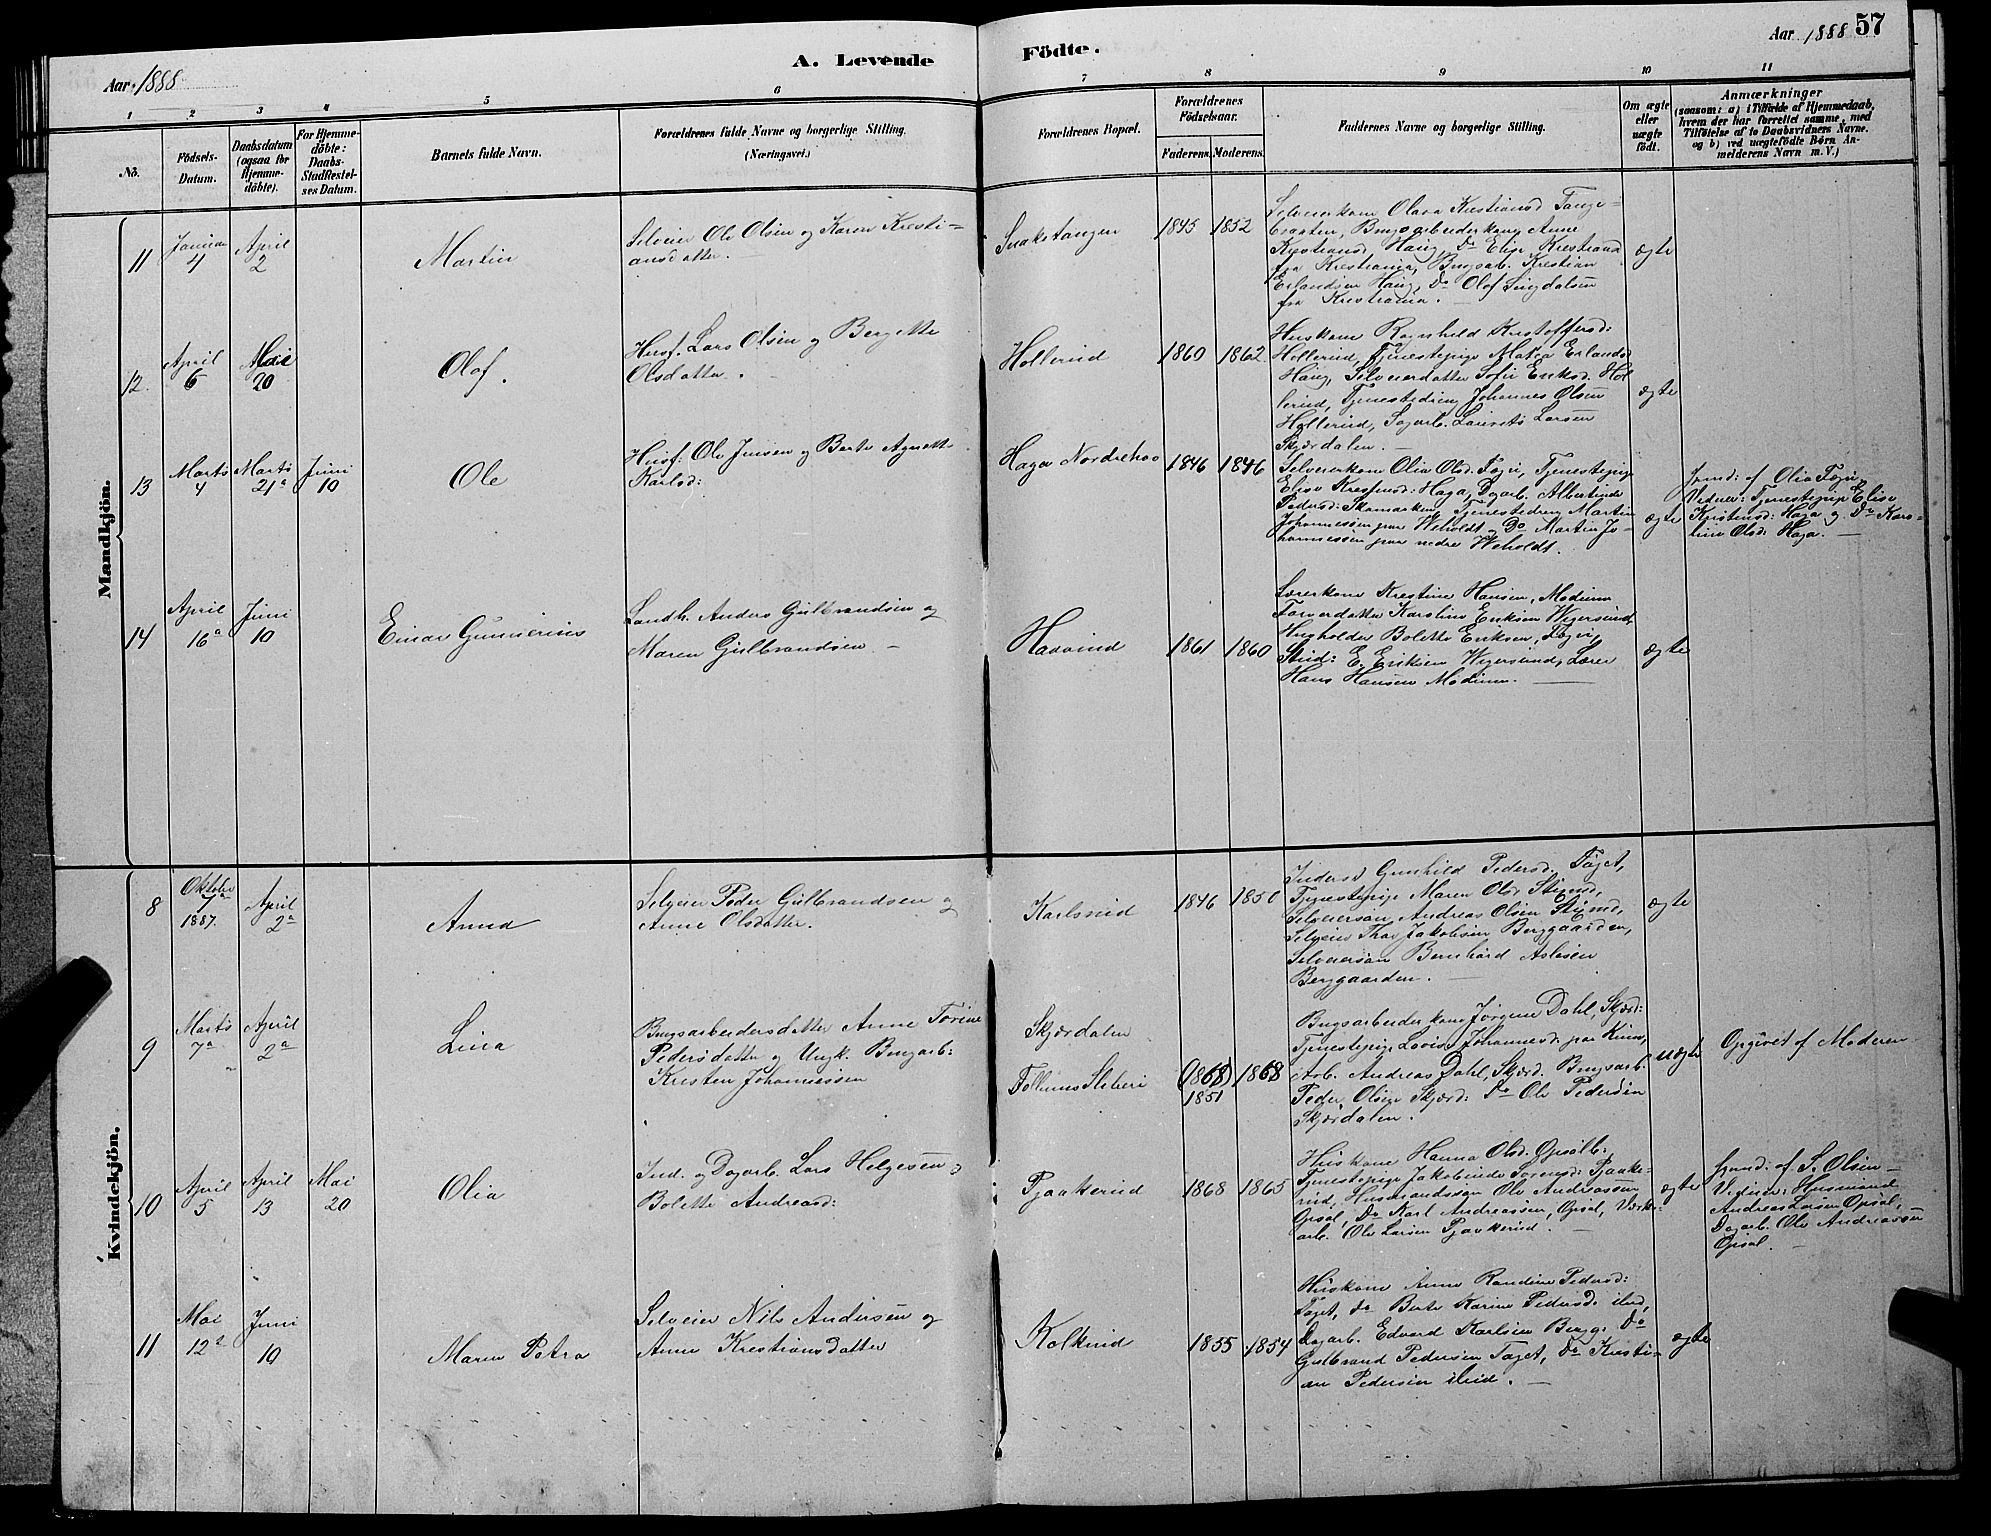 Aar 1888
A. Levende Födte.
Aar 1888 57
1 2 3 4 5 6 7 8 9 10 11
No.
Födsels-
Datum.
Daabsdatum
(ogsaa for
Hjemme-
döbte).
For Hjemme-
döbte:
Daabs-
Stadfæstel-
ses Datum.
Barnets fulde Navn.
Forældrenes fulde Navne og borgerlige Stilling.
(Næringsvei.)
Forældrenes Bopæl.
Forældrenes
Födselsaar.
Faderens. Moderens.
Faddernes Navne og borgerlige Stilling.
Om ægte
eller
uægte
födt.
Anmærkninger
(saasom: a) i Tilfælde af Hjemmedaab,
hvem der har forrettet samme, med
Tilföielse af to Daabsvidners Navne.
og b) ved uægtefödte Börn An-
melderens Navn m. V.)
Mandkjön.
11
Januar
4
April
2
Martin
Selveier Ole Olsen og Karen Kresti-
ansdatter.
Snakstangen
1845 1852
Selveierkone Olava Kristiansd Tange-
Braaten, Brugsarbeiderkone Anne
Kristiansd. Haug, Do Elise Kristiansd
fra Kristiania, Brugsarb. Kristian
Erlandsen Haug, Do Olof Singdalsen
fra Kristiania.
ægte
12.
April
6
Mai
20
Olaf.
Husf. Lars Olsen og Bergitte
Olsdatter.
Hollerud
1860 1862
Huskone Ragnhild Kristoffersd:
Hollerud, Tjenestepige Matea Erlandsd
Haug, Selveierdatter Sofie Eriksd. Hol
lerud, Tjenestedreng Johannes Olsen
Hollerud, Sagarb. Laurits Larsen
Skjærdalen.
ægte
13
Marts
4
Marts
21a
Juni
10
Ole
Husf. Ole Jensen og Berte Agnethe
Karlsd:
Haga Nordrehov
1846 1846
Selveierkone Olia Olsd. Fegri, Tjenestepige
Elise Kristensd: Haga, Dagarb. Albertinde
Pedersd: Skamaaken, Tjenestedreng Martin
Johannessen paa Weholdt, Do Martin Jo-
hannessen paa nedre Weholdt.
ægte
Jomd: af Olia Fegri,
Vidner: Tjenestepige Elise
Kristensd: Haga og Do Karo-
line Olsd. Haga.
14
April
16a
Juni
10
Einar Gunerius
Landh. Anders Gulbrandsen og
Maren Gulbrandsen
Haavind
1861 1860
Lærerkone Krestine Hansen, Modum
Farverdatter Karoline Eriksen Wegersund,
Husholder Bolette Eriksen, Fegri,
Stud: E. Eriksen Wegersund, Lærer
Hans Hansen Modum.
ægte
Kvindekjön.
8
Oktober
7a
1887.
April
2a
Anna
Selveier Peder Gulbrandsen og
Anne Olsdatter.
Karlsrud
1846 1850
Inderst Gunhild Pedersd. Taget,
Tjenestepige Maren Olsd Stignd,
Selveiersøn Andreas Olsen Stignd,
Selveier Thor Jakobsen Berggaarden,
Selveiersøn Bernhard Aslesen
Berggaarden.
ægte
9
Marts
7a
April
2a
Lina
Brugsarbeidersdatter Anne Torine
Pedersdatter og Ungk. Brugarb:
Kristen Johannessen
Skjærdalen
Follums Sliberi
(1868) 1868
1851
Brugsarbeiderkone Jørgine Dahl, Skjærd:
Tjenestepige Lovise Johannesd. paa Hurum,
Arb. Andreas Dahl, Skjærd. Brugsarb.
Peder Olsen Skjærd: Do Ole Pedersen
Skjærdalen.
uægte
Opgivet af Moderen
10
April
5
April
13
Mai
20
Olia
Ind. og Dagarb. Lars Helgesen og
Bolette Andreasd:
Pjaakerud
1868 1865
Huskone Hanna Olsd. Opsal:
Tjenestepige Jakobinde Sørensd: Pjaake-
rud, Husmandssøn Ole Andreassen
Opsal, Do Karl Andreassen, Opsal, Værks-
arb. Ole Larsen Pjaakerud.
ægte
Jomd: af S. Olsen
Vidner: Husmand
Andreas Larsen Opsal,
Dagarb. Ole Andreassen
Opsal.
11
Mai
12a
Juni
10
Maren Petra
Selveier Nils Andersen og
Anne Kristiansdatter
Kolkrud
1855 1854
Huskone Anne Randine Pedersd:
Taget, Do Berte Karine Pedersd: ibid,
Dagarb. Edvard Karlsen Berg: Do
Gulbrand Pedersen Taget, Do Kristi-
an Pedersen ibid.
ægte